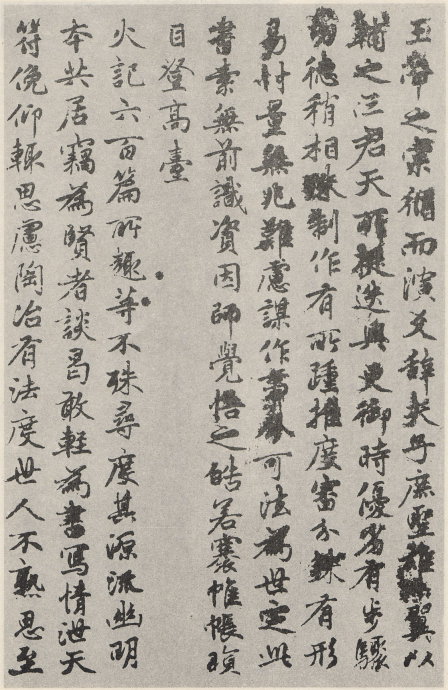 王帝之宗循而演爻辭夫子庶聖雄十翼以
輔之三君天所挺迭興更御時優劣有步驟
功德稍相殊制作有所踵推度審分銖有形
易忖量無兆難慮謀作事令可法為世定此
書素無前識資因師覺悟之皓若褰帷帳瞋
目登高臺
火記六百篇所趣等不殊尋度其源流幽明
本共居竊為賢者談曷敢輕為書寫情泄天
符俛仰輒思慮陶冶有法度世人不熟思至